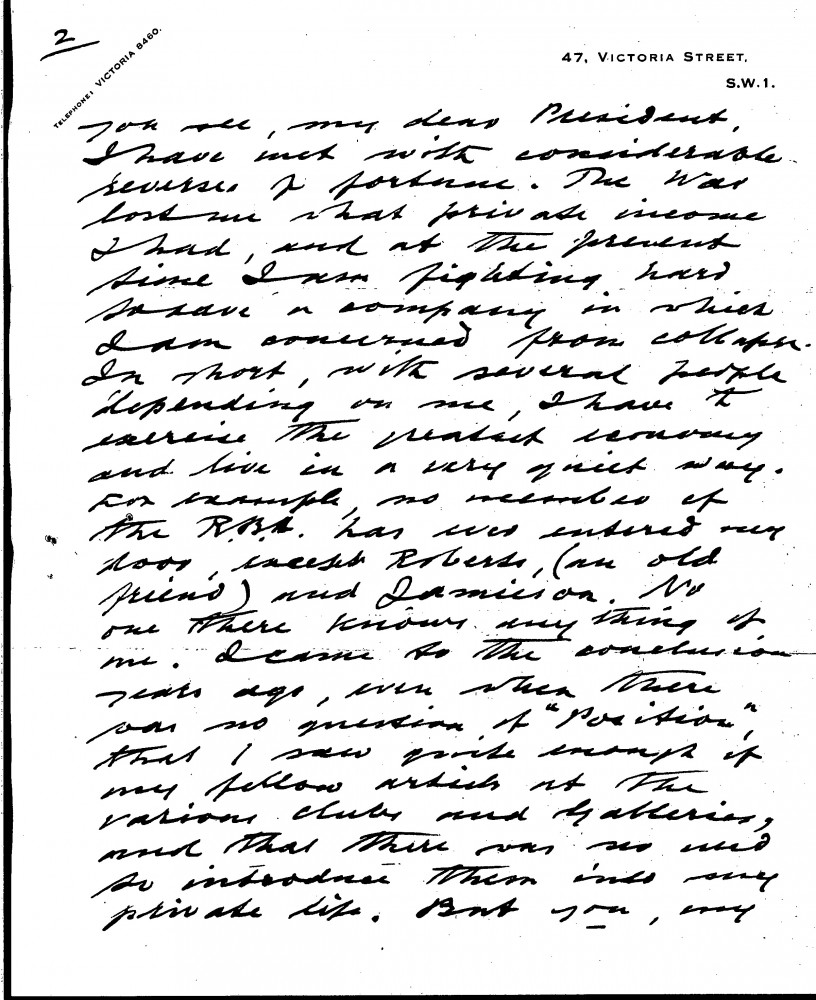 2
TELEPHONE: VICTORIA 8460.
47, VICTORIA STREET,
S.W.1.
you see, my dear President,
I have met with considerable
reverses of fortune. The War
lost me what private income
I had, and at the present
time I am fighting hard
to save a company in which
I am concerned from collapse.
In short, with several people
depending on me, I have to
exercise the greatest economy
and live in a very quiet way.
For example, no member of
the R.B.A. has ever entered my
door, except Roberts, (an old
friend) and Jamieson. No
one there knows anything of
me. I came to the conclusion
years ago, even when there
was no question of "Position",
that I saw quite enough of
my fellow artists at the
various clubs and Galleries,
and that there was no need
to introduce them into my
private life. But you, my